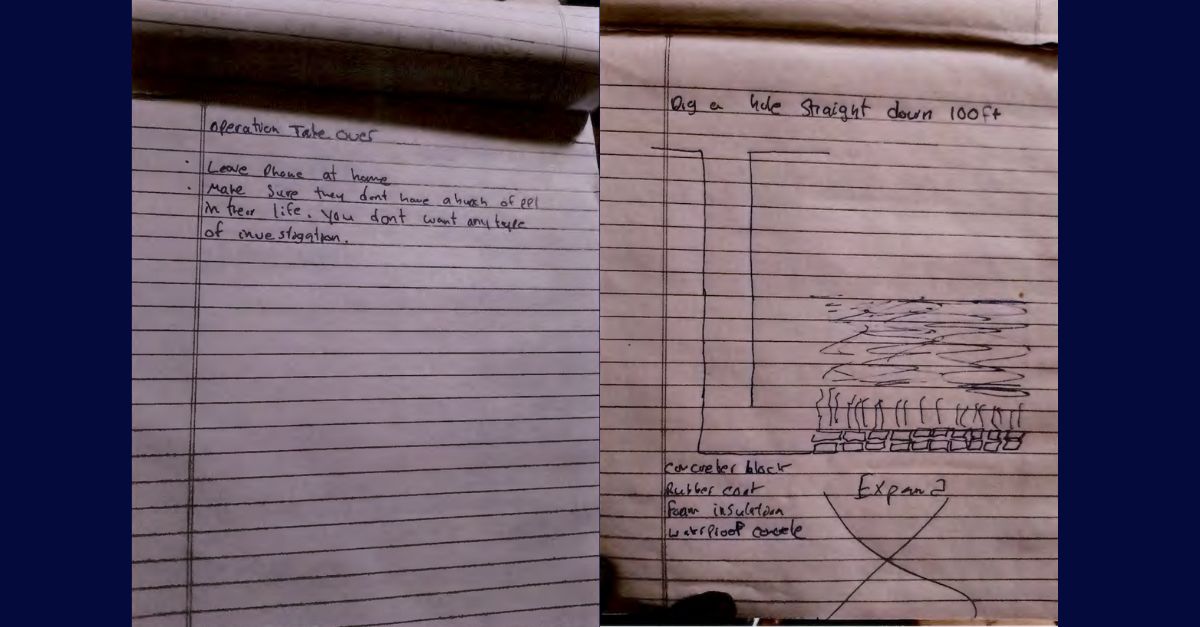 operation Take over
• Leave Phone at home
• Make Sure they dont have a bunch of ppl
in their life. You dont want any type
of investagation.
Dig a hole straight down 100ft
concreter block
Rubber coat
foam insulation
waterproof
Expand